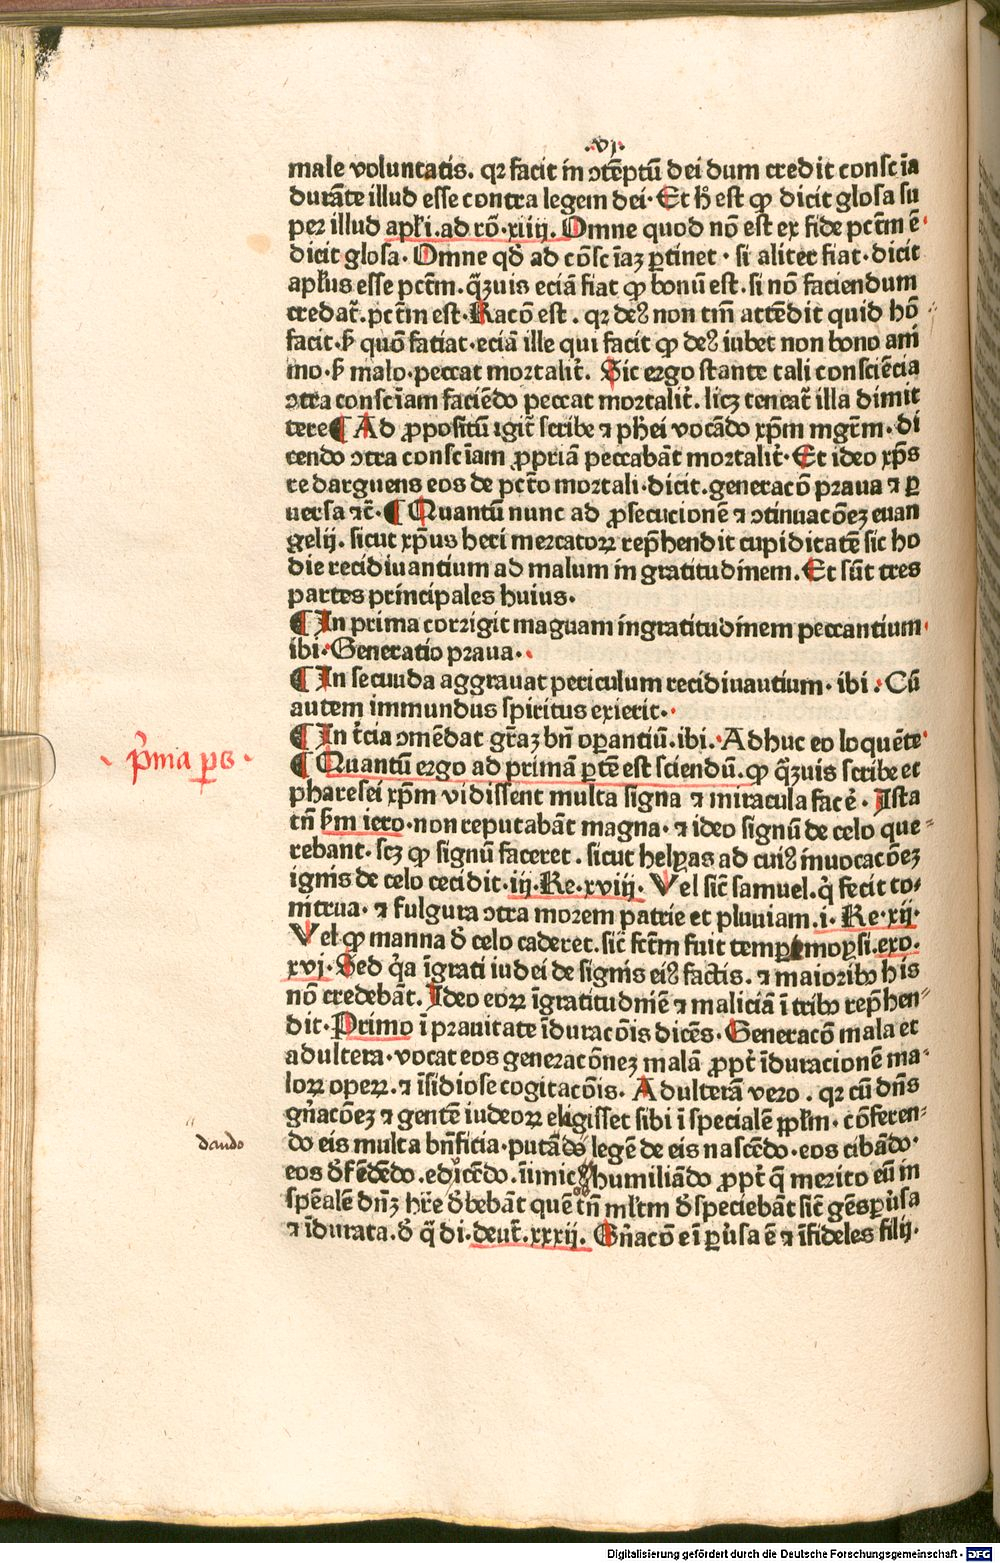 .vj.
male voluntatis. qꝛ facit in ↄtēptū dei dum credit conscīa
durāte illud esse contra legem dei. Et hͦ est ꝙ dicit glosa su
per illud apl̄i. ad rō. xiiij. Omne quod nō est ex fide pctm̄ ē
dicit glosa. Omne qd̄ ad cōscīaꝫ ꝑtinet. si aliter fiat. dicit
apl̄us esse pctm̄. q̄ꝫuis eciā fiat ꝙ bonū est. si nō faciendum
credat̄. pctm̄ est. Racō est. qꝛ deꝰ non tm̄ attēdit quid hō
facit. sꝫ quō fatiat. eciā ille qui facit ꝙ deꝰ iubet non bono ani
mo. sꝫ malo. peccat mortalit̄. Sic ergo stante tali consciēcia
ↄtra conscīam faciēdo peccat mortalit̄. licꝫ teneat̄ illa dimit
tere ¶ Ad ꝓpositū igit̄ scribe ⁊ pħei vocādo xp̄m mgr̄m. di
cendo ↄtra conscīam ꝓpriā peccabāt mortalit̄. Et ideo xp̄s
redarguens eos de pctō mortali. dicit. generacō praua ⁊ ꝑ
uersa ⁊c̄. ¶ Quantū nunc ad ꝓsecucionē ⁊ ↄtinuacōeꝫ euan
gelij. sicut xp̄us heri mercatoꝝ rep̄hendit cupiditatē sic ho
die recidiuantium ad malum ingratitudinem. Et sūt tres
partes principales huius.
¶ In prima corrigit magnam ingratitudinem peccantium
ibi. Generatio praua.
¶ In secunda aggrauat periculum recidiuantium. ibi. Cū
autem immundus spiritus exierit.
¶ In t̄cia ↄmēdat gr̄aꝫ bn̄ oꝑantiū. ibi. Adhuc eo loquēte
pͥma ꝑs
¶ Quantū ergo ad primā ꝑtē est sciendū. ꝙ q̄ꝫuis scribe et
pharesei xp̄m vidissent multa signa ⁊ miracula facē. Ista
tn̄ sm̄ iero. non reputabāt magna. ⁊ ideo signū de celo que
rebant. scꝫ ꝙ signū faceret. sicut helyas ad cuiꝰ inuocacōeꝫ
ignis de celo cecidit. iij. Re. xviij. Vel sic̄ samuel. qͥ fecit to
nitrua. ⁊ fulgura ↄtra morem patrie et pluuiam. i. Re. xij.
Vel ꝙ manna d̄ celo caderet. sic̄ fctm̄ fuit tempe moysi. exo.
xvj. Sed qͣ īgrati iudei de signis eiꝰ factis. ⁊ maioribꝰ his
nō credebāt. Ideo eoꝝ īgratitudinē ⁊ maliciā ī tribꝰ rep̄hen
dit. Primo ī prauitate īduracōis dicēs. Generacō mala et
adultera. vocat eos generacōneꝫ malā ꝓpt̄ īduracionē ma
loꝝ opeꝝ. ⁊ īsidiose cogitacōis. Adulterā vero. qꝛ cū dn̄s
gn̄acōeꝫ ⁊ gentē iudeoꝝ eligisset sibi ī specialē ꝓplm̄. cōferen
dando
do eis multa bn̄ficia. putādo legē de eis nascēdo. eos cibādo.
eos d̄fēdēdo. edͥucēdo. īimicos humiliādo ꝓpt̄ q̄ merito eū in
spēalē dn̄ꝫ hr̄e d̄bebāt quē tn̄ ml̄tm d̄speciebāt sic̄ gēs ꝑuͥsa
⁊ īdurata. d̄ q̄ di. deut̄. xxxij. Gn̄acō em̄ ꝑuͥsa ē ⁊ īfideles filij.
Digitalisierung gefördert durch die Deutsche Forschungsgemeinschaft - DFG